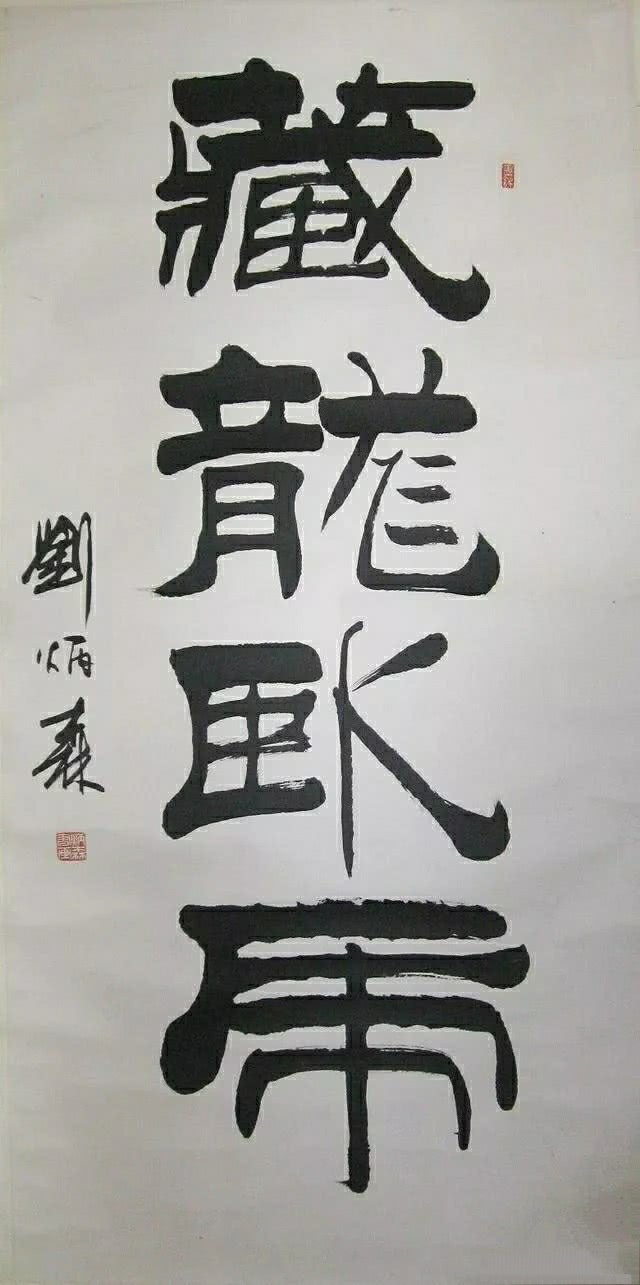 藏龍卧虎
劉炳森